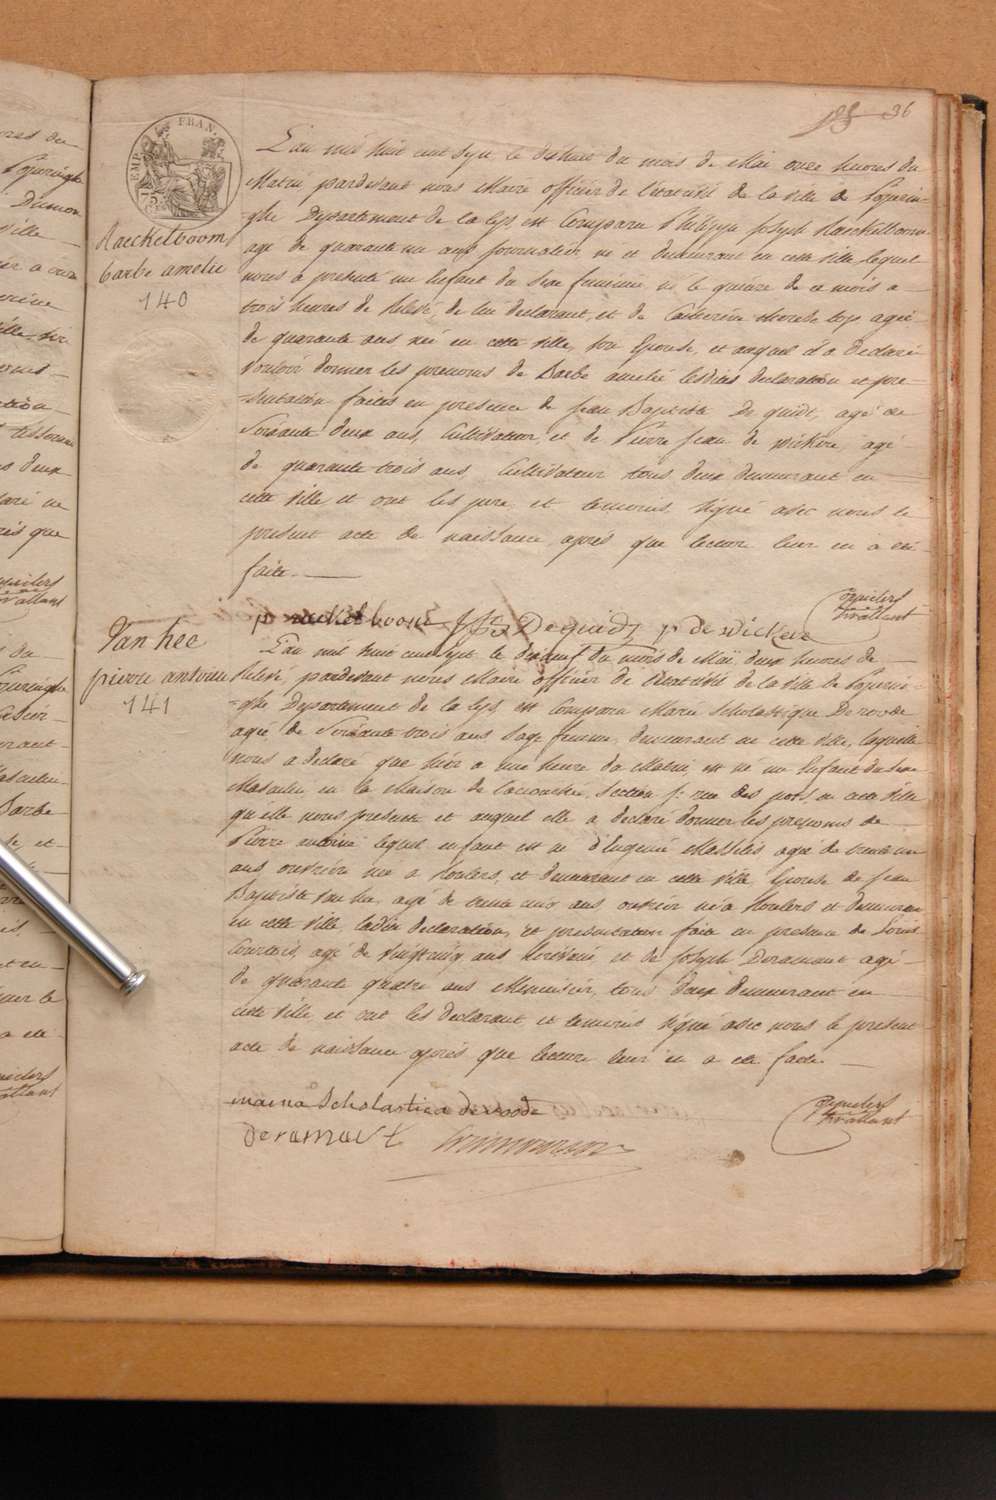 36
EMP. FRAN.
L'an mil huit cent sept, le dixhuit du mois de Mai onze heures du
Matin, pardevant nous Maire officier de l'état civil de la ville de Poperin-
ghe Departement de la Lys est comparu Philippe Joseph Raeckelboom
agé de quarante un ans Journalier né et demeurant en cette ville lequel
nous a presenté un enfant du sexe feminin né le quinze de ce mois a
trois heures de Relevé, de lui declarant, et de Catherine therese Leys agée
de quarante ans née en cette ville, son Epouse, et auquel il a declaré
vouloir donner les prenoms de Barbe amelie lesdites declaration et pre-
sentation faites en presence de Jean Baptiste De quidt, agé de
Soixante deux ans, Cultivateur, et de Pierre Jean de wickere, agé
de quarante trois ans, Cultivateur tous deux demeurant en
cette ville, et ont les pere, et temoins, signé avec nous le
present acte de naissance, après que lecture leur en a été
faite.
Raeckelboom
barbe amelie
140
p raekelboom JB Dequidt p de wickere
L'an mil huit cent sept le dixneuf du mois de Maï, deux heures de
Relevé, pardevant nous Maire officier de l'état civil de la ville de Poperin-
ghe Departement de la Lys, est comparu Marie Scholastique Deroode
agée de Soixante trois ans Sage femme, demeurant en cette ville, laquelle
nous a declaré que hier a une heure du Matin, est né un Enfant du sexe
Masculin en la Maison de l'accouchée, Section f: rue des pots, en cette ville
qu'elle nous presente et auquel elle a declaré donner les prenoms de
Pierre antoine lequel enfant est né d'Eugenie Masselis agée de trente un
ans, ouvrière née a Roulers, et demeurant en cette ville, Epouse de Jean
Baptiste van hee, agé de trente ans ouvrier né a Roulers et demeurant
en cette ville, lesdites declaration, et presentation faite en presence de Louis
Courtois, agé de vingt cinq ans Ecrivain, et de Joseph Deramaut agé
de quarante quatre ans Menuisier, tous deux demeurant en
cette ville, et ont les declarant et temoins signé avec nous le present
acte de naissance après que lecture leur en a été faite.
Van hee
pierre antoine
141
maria Scholastica deroode
Deramaut